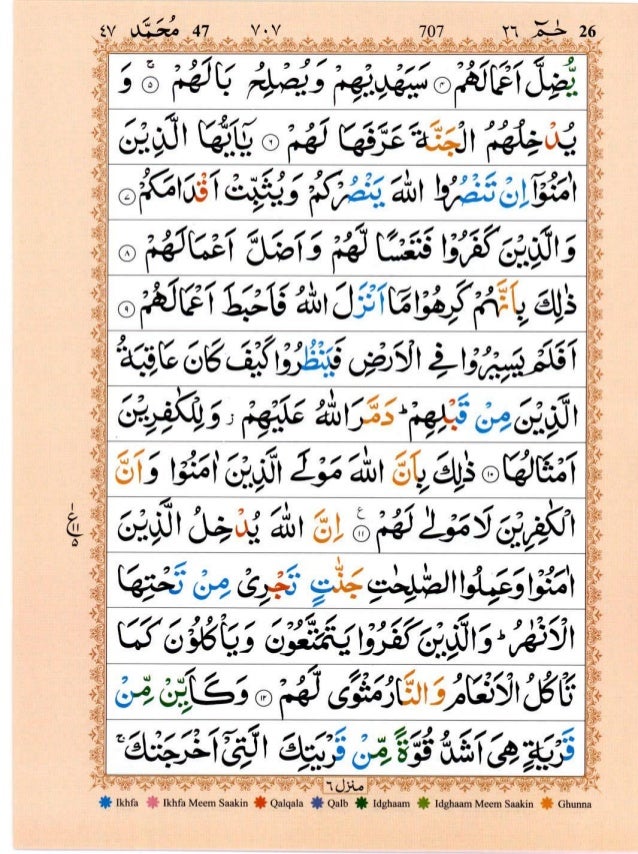 ٤٧ مُحَمَّد 47 ٧٠٧ 707 ٢٦ حٰمٓ 26
يُّضِلَّ اَعْمَالَهُمْ ۝٤ سَيَهْدِيْهِمْ وَيُصْلِحُ بَالَهُمْ ۝٥ۚ وَ
يُدْخِلُهُمُ الْجَنَّةَ عَرَّفَهَا لَهُمْ ۝٦ يٰٓاَيُّهَا الَّذِيْنَ
اٰمَنُوْٓا اِنْ تَنْصُرُوا اللّٰهَ يَنْصُرْكُمْ وَيُثَبِّتْ اَقْدَامَكُمْ ۝٧
وَالَّذِيْنَ كَفَرُوْا فَتَعْسًا لَّهُمْ وَاَضَلَّ اَعْمَالَهُمْ ۝٨
ذٰلِكَ بِاَنَّهُمْ كَرِهُوْا مَآ اَنْزَلَ اللّٰهُ فَاَحْبَطَ اَعْمَالَهُمْ ۝٩
اَفَلَمْ يَسِيْرُوْا فِي الْاَرْضِ فَيَنْظُرُوْا كَيْفَ كَانَ عَاقِبَةُ
الَّذِيْنَ مِنْ قَبْلِهِمْ ؕ دَمَّرَ اللّٰهُ عَلَيْهِمْ ز وَلِلْكٰفِرِيْنَ
اَمْثَالُهَا ۝١٠ ذٰلِكَ بِاَنَّ اللّٰهَ مَوْلَى الَّذِيْنَ اٰمَنُوْا وَاَنَّ
الْكٰفِرِيْنَ لَا مَوْلٰى لَهُمْ ۝١١ ع اِنَّ اللّٰهَ يُدْخِلُ الَّذِيْنَ
ع ١١ ٥
اٰمَنُوْا وَعَمِلُوا الصّٰلِحٰتِ جَنّٰتٍ تَجْرِيْ مِنْ تَحْتِهَا
الْاَنْهٰرُ ؕ وَالَّذِيْنَ كَفَرُوْا يَتَمَتَّعُوْنَ وَيَاْكُلُوْنَ كَمَا
تَاْكُلُ الْاَنْعَامُ وَالنَّارُ مَثْوًى لَّهُمْ ۝١٢ وَكَاَيِّنْ مِّنْ
قَرْيَةٍ هِيَ اَشَدُّ قُوَّةً مِّنْ قَرْيَتِكَ الَّتِيْٓ اَخْرَجَتْكَ ۚ
منزل ٦
Ikhfa Ikhfa Meem Saakin Qalqala Qalb Idghaam Idghaam Meem Saakin Ghunna